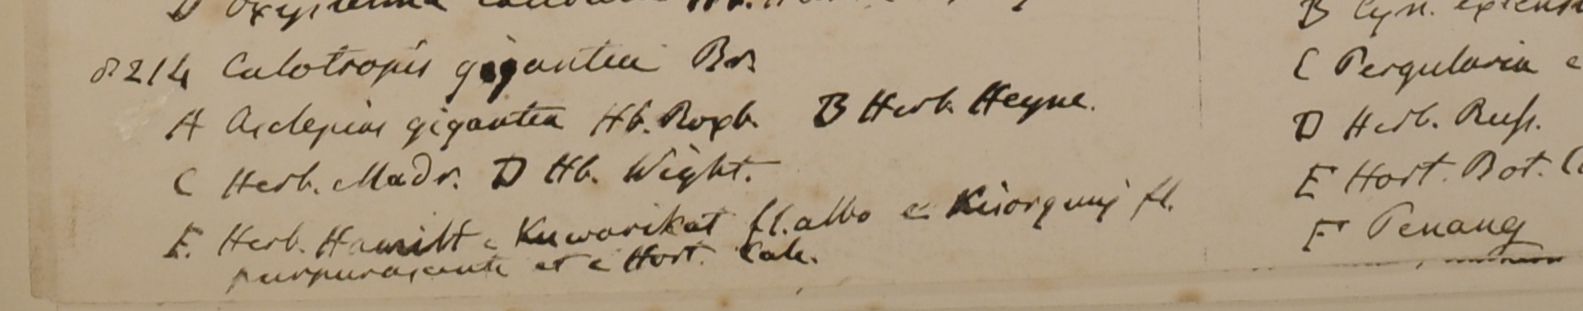 D Oxystelma
8214 Calotropis gigantea Br.
A Asclepias gigantea Hb. Roxb. B Herb. Heyne.
C Herb. Madr. D Hb. Wight.
E. Herb. Hamilt e fl. albo e fl.
purpurascente et e Hort. Calc.
B Cyn.
C Pergularia
D Herb. Russ.
E Hort. Bot.
F Penang